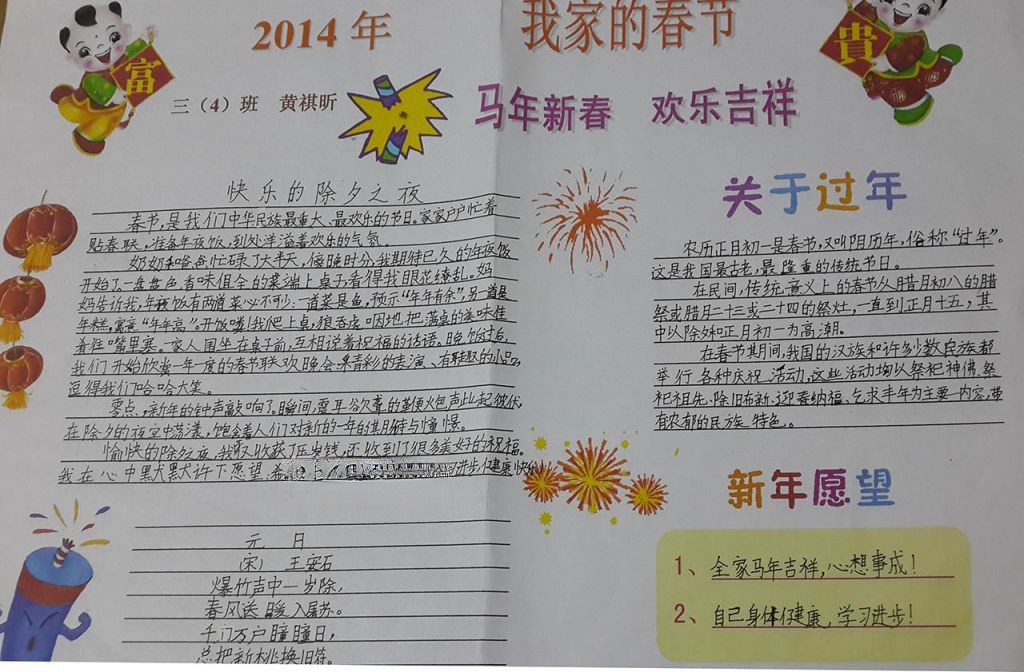 2014 年
我家的春节
富
貴
三（4）班 黄祺昕
马年新春 欢乐吉祥
快乐的除夕之夜
春节,是我们中华民族最重大、最欢乐的节日。家家户户忙着
贴春联,准备年夜饭,到处洋溢着欢乐的气氛。
奶奶和爸爸忙碌了大半天,傍晚时分,我期待已久的年夜饭
开始了,一盘盘色香味俱全的菜端上桌子看得我眼花缭乱。妈
妈告诉我,年夜饭有两道菜必不可少:一道菜是鱼,预示“年年有余”,另一道是
年糕,寓意“年年高”。开饭喽!我们爬上桌,狼吞虎咽地把满桌的美味佳
肴往嘴里塞。一家人围坐在桌子前,互相说着祝福的话语。晚饭过后,
我们开始欣赏一年一度的春节联欢晚会
逗得我们哈哈大笑。
零点,新年的钟声敲响了。瞬间,震耳欲聋的鞭炮声此起彼伏,
在除夕的夜空中荡漾,饱含着人们对新的一年的期盼与憧憬。
愉快的除夕之夜,我又收获了压岁钱,还收到了很多美好的祝福。
我在心中默默许下愿望:希 进步!健康快
元 日
（宋） 王安石
爆竹声中一岁除,
春风送暖入屠苏。
千门万户瞳瞳日,
总把新桃换旧符。
关于过年
农历正月初一是春节,又叫阴历年,俗称“过年”。
这是我国最古老,最隆重的传统节日。
在民间,传统意义上的春节从腊月初八的腊
祭或腊月二十三或二十四的祭灶,一直到正月十五,其
中以除夕和正月初一为高潮。
在春节其间,我国的汉族和许多少数民族都
举行各种庆祝活动,这些活动均以祭祀神佛、祭
祀祖先、除旧布新、迎喜纳福、乞求丰年为主要一内容,带
有浓郁的民族特色。
新年愿望
1、全家马年吉祥,心想事成!
2、自己身体健康,学习进步!